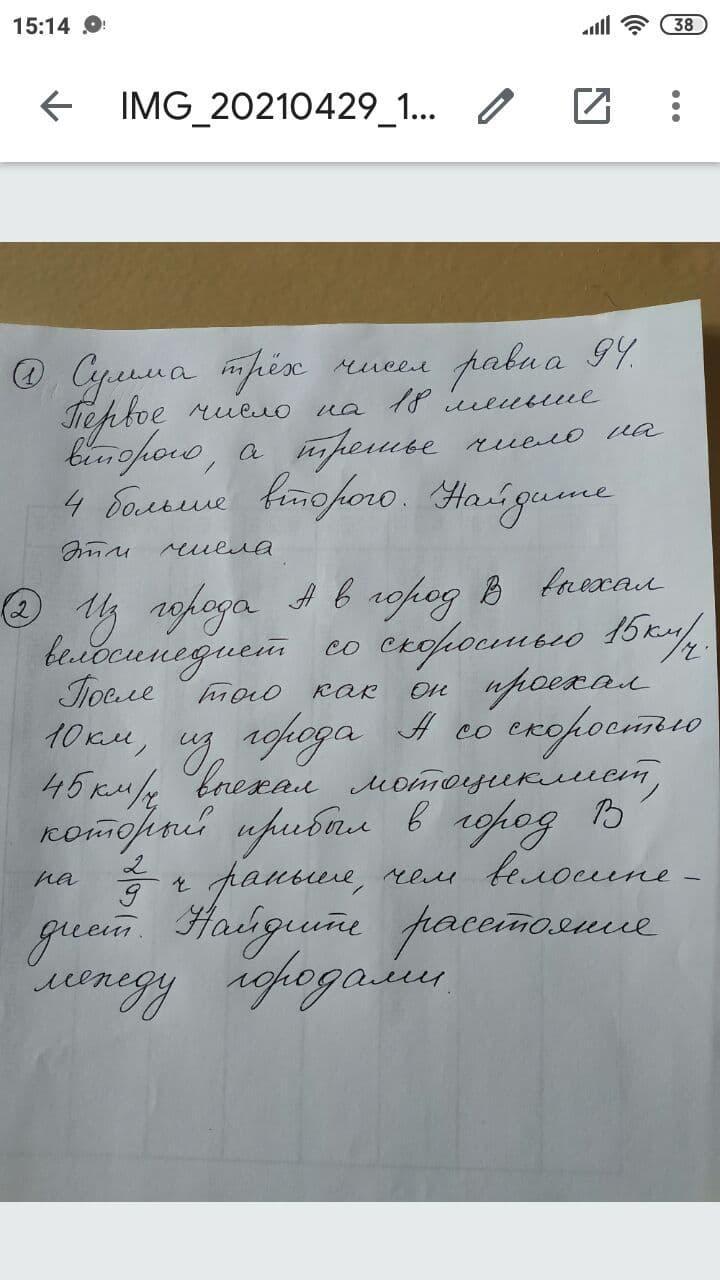 15:14
38
IMG_20210429_1...
① Сумма трёх чисел равна 94.
Первое число на 18 меньше
второго, а третье число на
4 больше второго. Найдите
эти числа
② Из города А в город В выехал
велосипедист со скоростью 15км/ч.
После того как он проехал
10км, из города А со скоростью
45км/ч выехал мотоциклист,
который прибыл в город В
на 2/9 ч раньше, чем велосипе-
дист. Найдите расстояние
между городами.